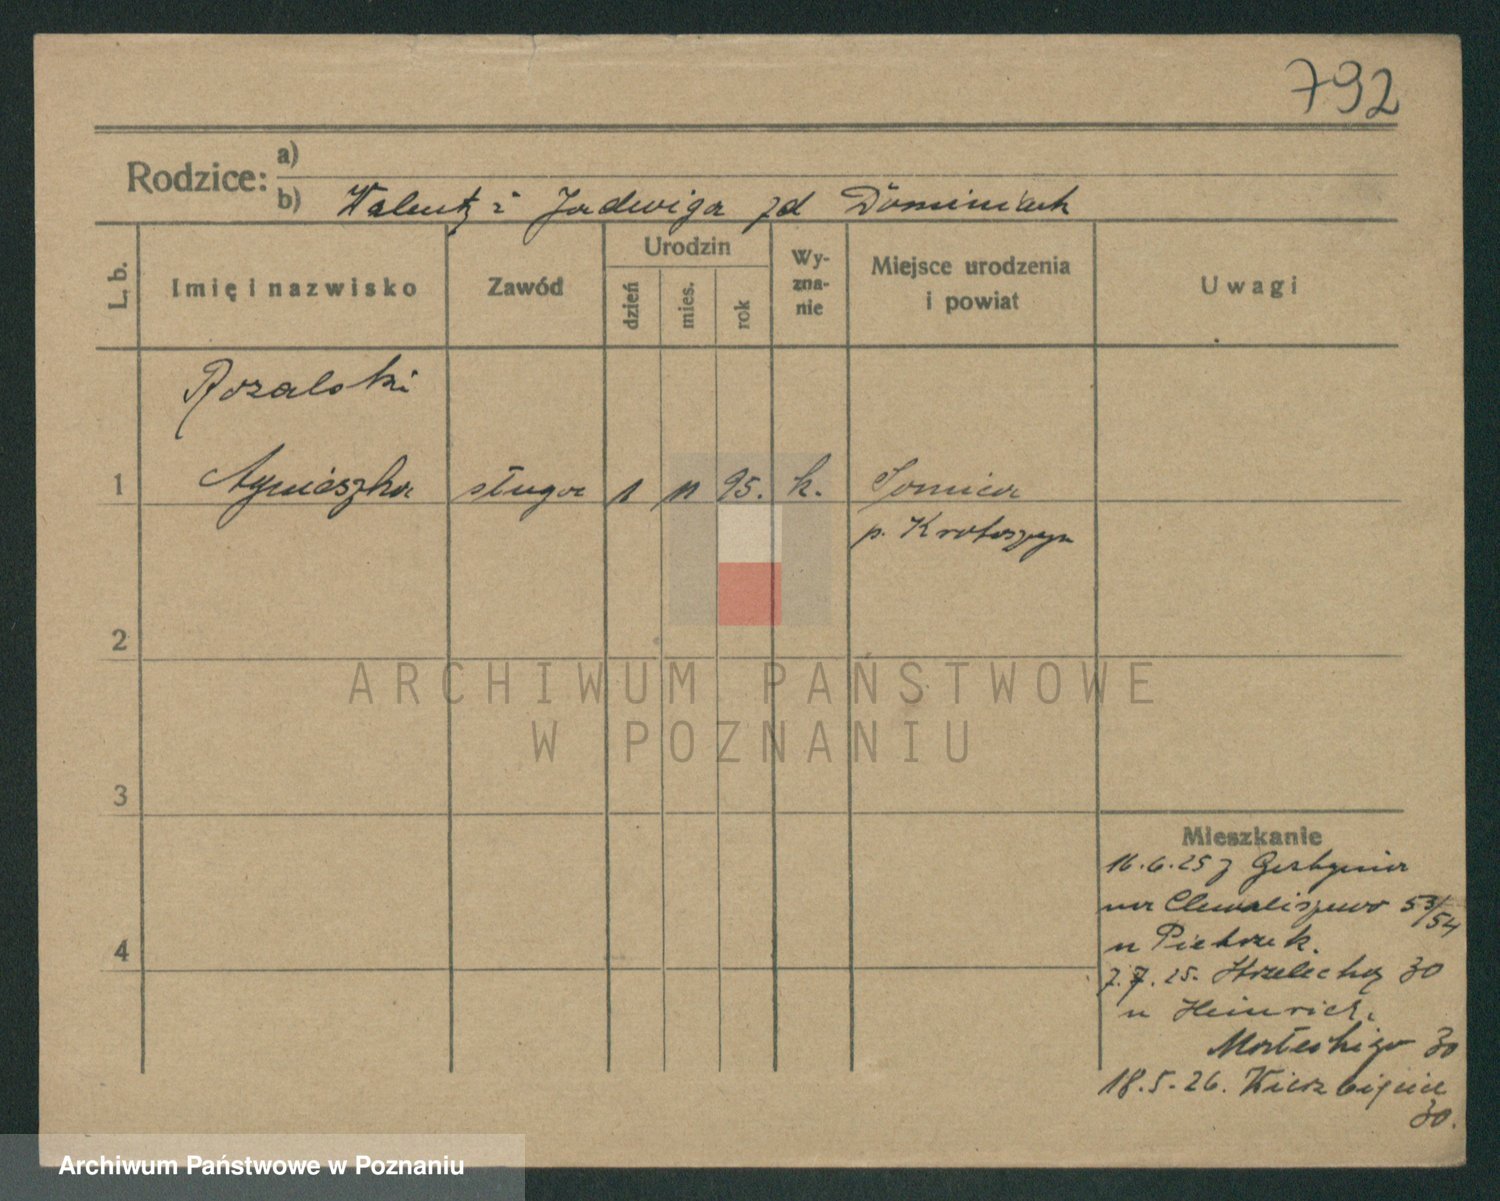 792
Rodzice:
a)
b) Walenty i Jadwiga zd Dominiak
L. b.
Imię i nazwisko
Zawód
Urodzin
dzień
mies.
rok
Wy-
zna-
nie
Miejsce urodzenia
i powiat
Uwagi
Rozalski
1 Agnieszka sługa 1 11 95. k.
p. Krotoszyn
2
3
4
Mieszkanie
16.6.25 z
na Chwaliszewo 53/54
u Pietrzek.
7.7.25. Strzelecka 30
u Heinrich.
30
18.5.26. Wierzbięcice
30.
ARCHIWUM PAŃSTWOWE
W POZNANIU
Archiwum Państwowe w Poznaniu